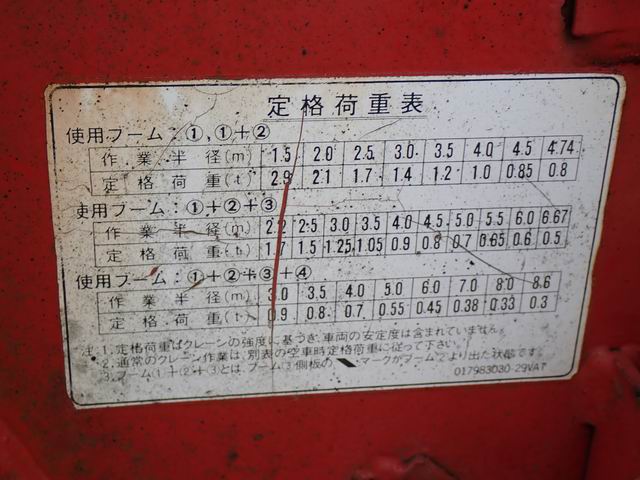 定格荷重表
使用ブーム：①,①+②
作業半径(m) 1.5 2.0 2.5 3.0 3.5 4.0 4.5 4.74
定格荷重(t) 2.9 2.1 1.7 1.4 1.2 1.0 0.85 0.8
使用ブーム：①+②+③
作業半径(m) 2.2 2.5 3.0 3.5 4.0 4.5 5.0 5.5 6.0 6.67
定格荷重(t) 1.7 1.5 1.25 1.05 0.9 0.8 0.7 0.65 0.6 0.5
使用ブーム：①+②+③+④
作業半径(m) 3.0 3.5 4.0 5.0 6.0 7.0 8.0 8.6
定格荷重(t) 0.9 0.8 0.7 0.55 0.45 0.38 0.33 0.3
注：1.定格荷重はクレーンの強度に基づき,車両の安定度は含まれていません。
2.通常のクレーン作業は,別表の空車時定格荷重に従って下さい。
3.ブーム①+②+③とは,ブーム③側板の マークがブーム②より出た状態です。
017983030-29VAT